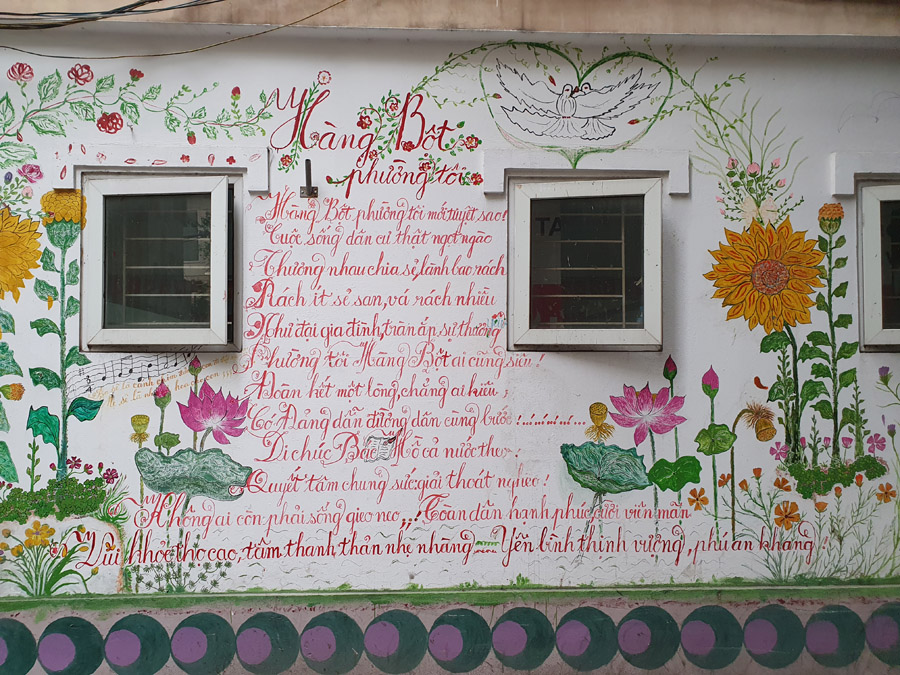 Hàng Bột
phường tôi
Hàng Bột, phường tôi mới tuyệt sao!
Cuộc sống dân cư thật ngọt ngào
Thương nhau chia sẻ, lành bao rách
Rách ít sẻ san, vá rách nhiều
Như đại gia đình, tràn ắp sự thương
Phường tôi Hàng Bột ai cũng siêu!
Đoàn kết một lòng, chẳng ai kiêu
Có Đảng dẫn đường dân cùng bước!
Di chúc Bác Hồ cả nước theo
Quyết tâm chung sức: giải thoát nghèo!
Không ai còn phải sống gieo neo,,! Toàn dân hạnh phúc, đời viên mãn
Vui khỏe thọ cao, tâm thanh, thản nhẹ nhàng Yên bình thịnh vượng, phú an khang!